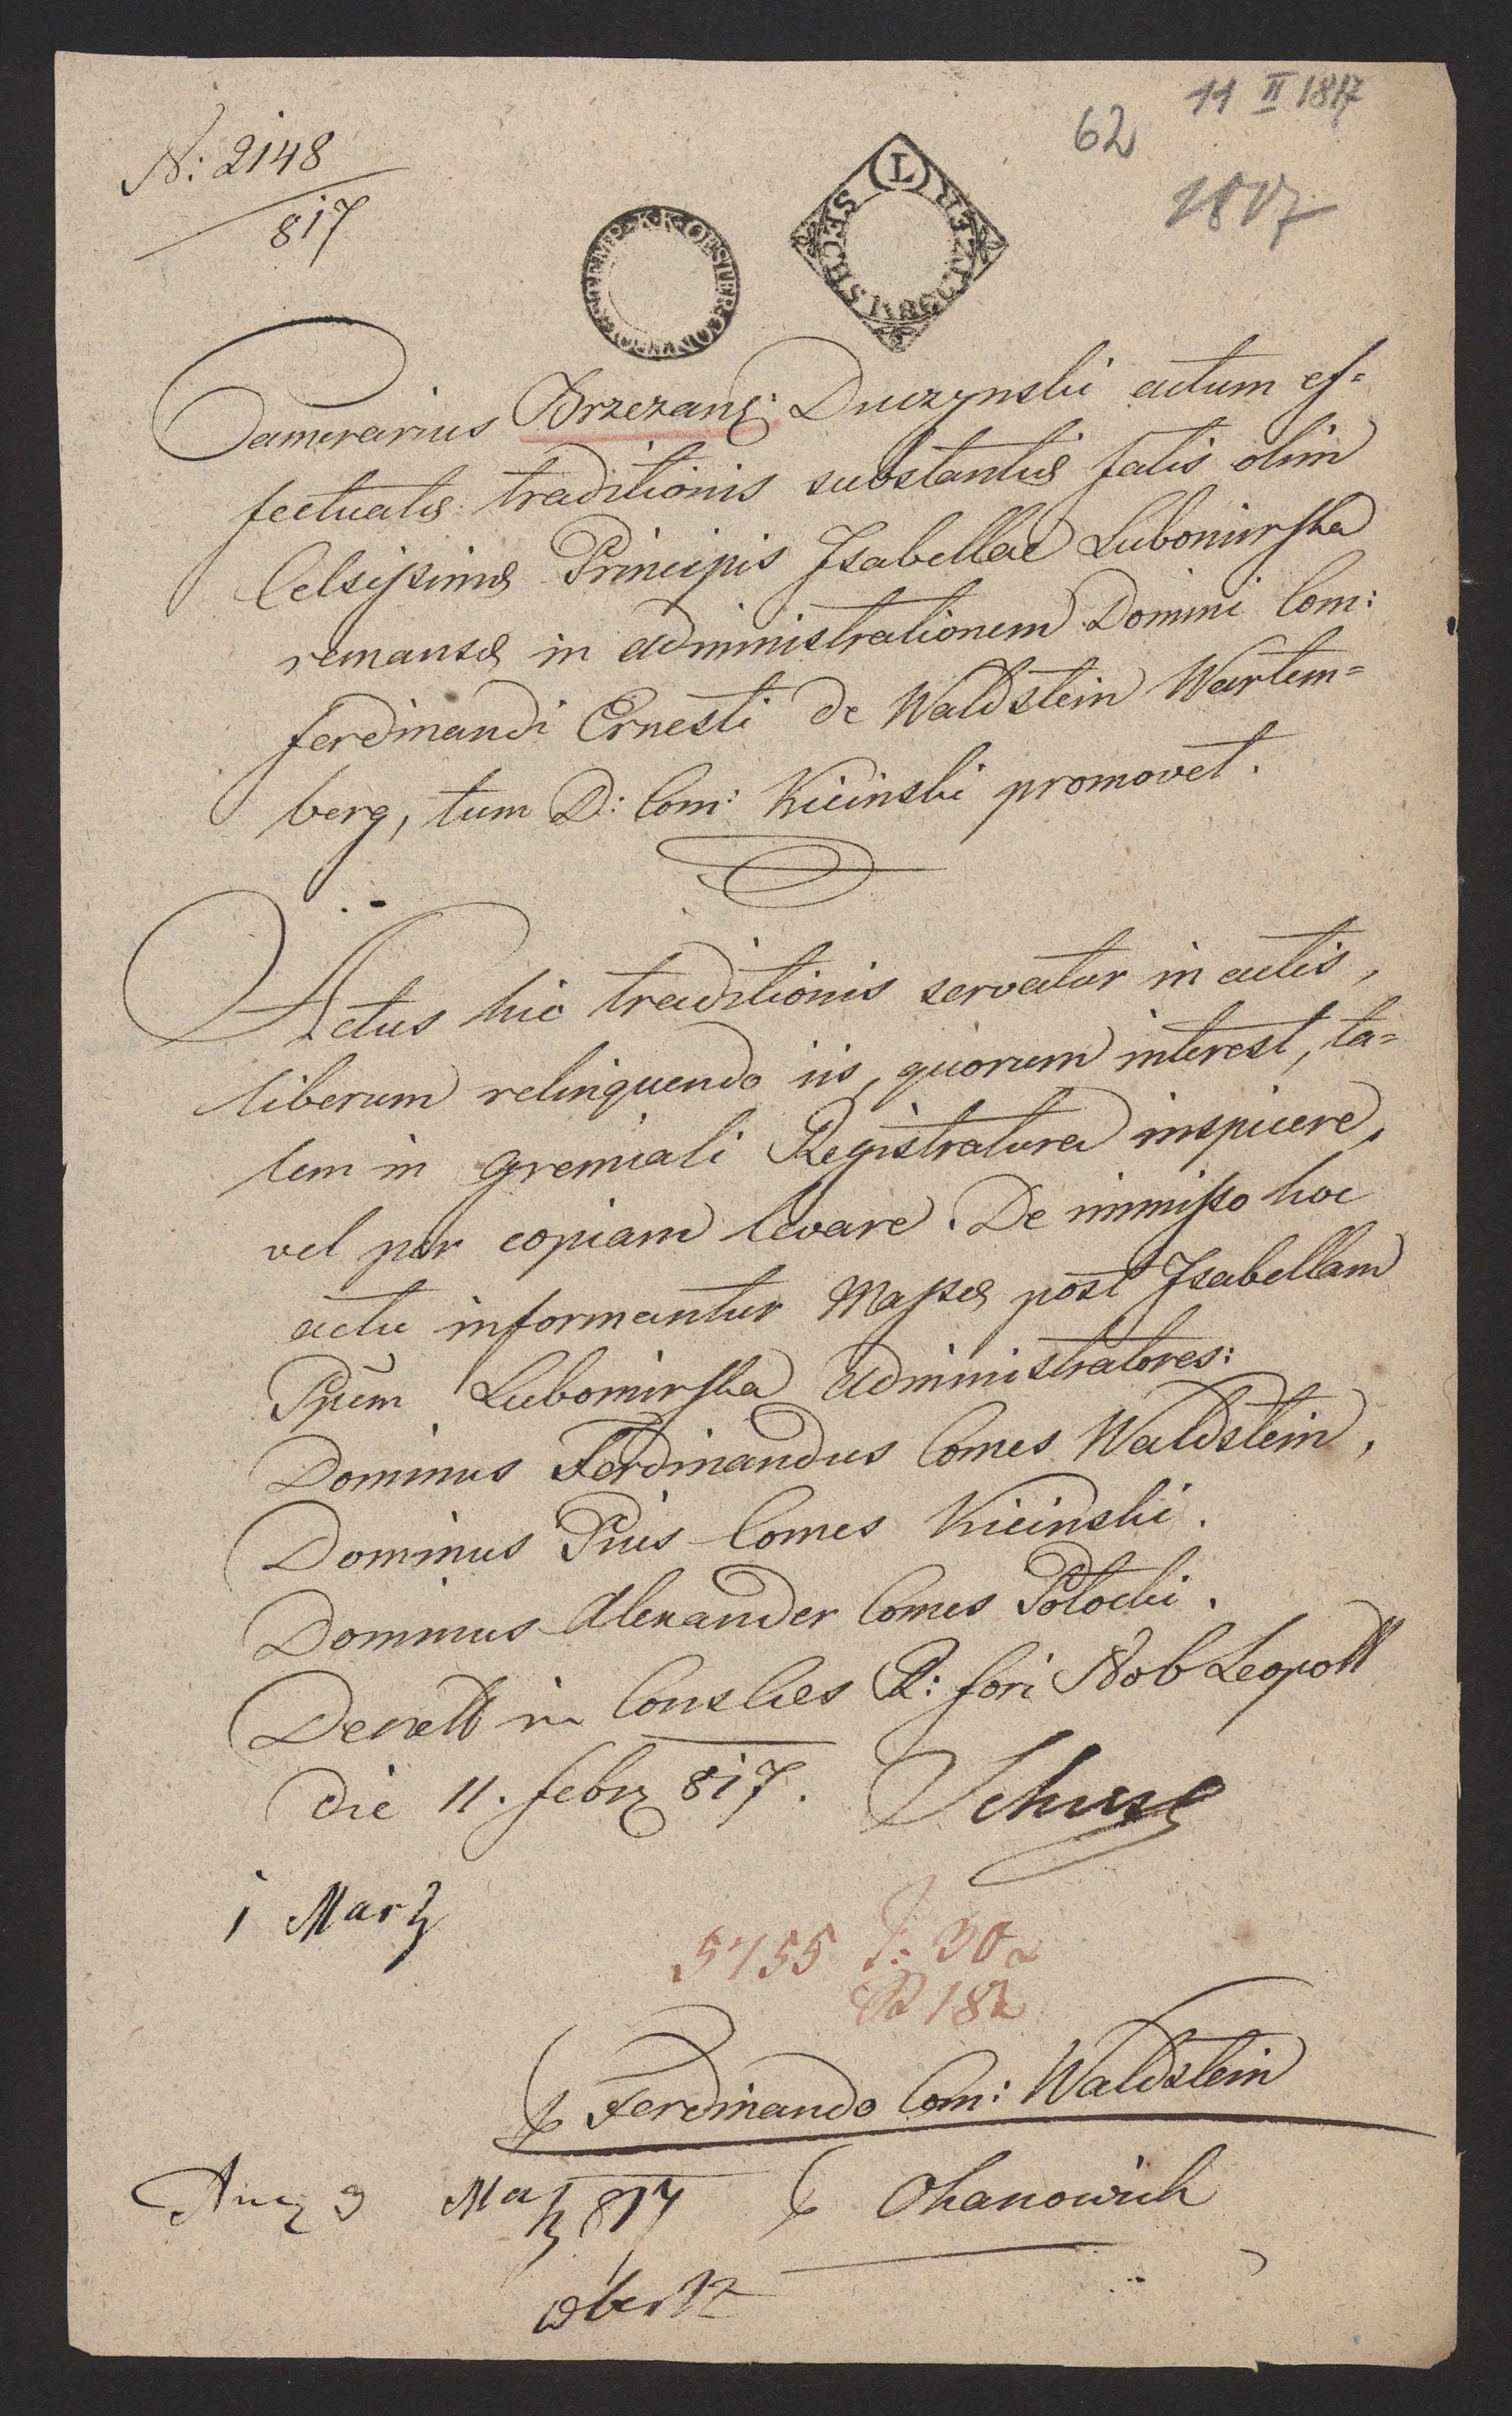 N: 2148
817
62
11 II 1817
1817
K.K. OESTER.
SECHS KREUZER
Camerarius Brzezanę: Duczynski actum ef=
fectuatę traditionis substantię fatis olim
Celsissimę Principis Isabellae Lubomirska
remansę in administrationem Domini Com:
Ferdinandi Ernesti de Waldstein Wartem=
berg, tum D: Com: Kicinski promovet.
Actus hic traditionis servatur in actis,
liberum relinquendo iis, quorum interest, ta=
lem in gremiali Registratura inspicere,
vel per copiam levare. De immisso hoc
actu informantur Massę post Isabellam
Ppem Lubomirska administratores:
Dominus Ferdinandus Comes Waldstein,
Dominus Pius Comes Kicinski.
Dominus Alexander Comes Potocki.
in Conslies R: fori Nob Leopoll
die 11. febr 817.
1 Martz
5755
182
Ferdinando Com: Waldstein
3 817
Ohanowich